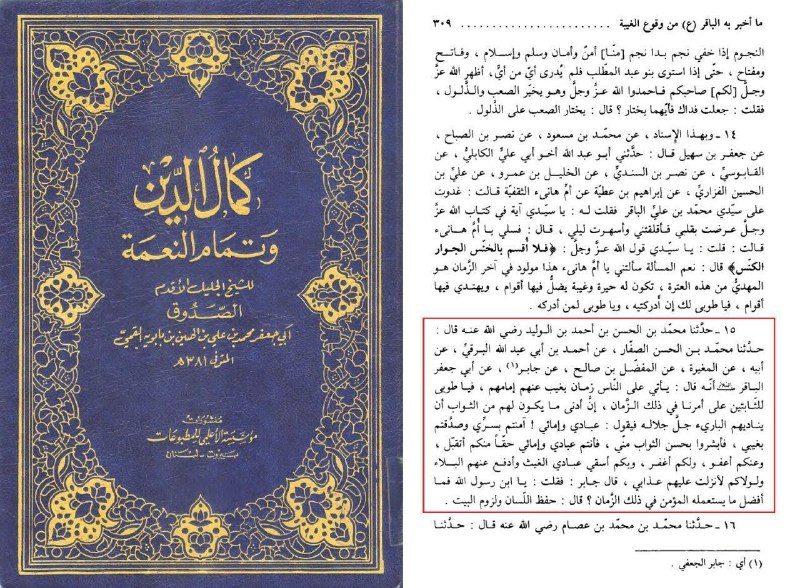 كمال الدين
وتمام النعمة
للشيخ الجليل الأقدم
الصدوق
أبي جعفر محمد بن علي بن الحسين بن بابويه القمي
المتوفى ٣٨١هـ
منشورات
مؤسسة الأعلمي للمطبوعات
بيروت - لبنان
ما أخبر به الباقر (ع) من وقوع الغيبة . . . . . . . . . . . . . . . . . . . . . . . ٣٠٩
النجوم إذا خفي نجم بدا نجم [منّا] أمنٌ وأمان وسلم وإسلام ، وفاتح
ومفتاح ، حتّى إذا استوى بنو عبد المطّلب فلم يُدرى أيّ من أيٍّ، أظهر الله عزَّ
وجلَّ [لكم] صاحبكم فاحمدوا الله عزَّ وجلَّ وهو يخيّر الصعب والذَّلول ،
فقلت : جعلت فداك فأيّهما يختار ؟ قال : يختار الصعب على الذَّلول .
١٤ ـ وبهذا الإسناد ، عن محمّد بن مسعود ، عن نصر بن الصباح ،
عن جعفر بن سهيل قال : حدَّثني أبو عبد الله أخو أبي عليّ الكابليُّ ، عن
القابوسيِّ ، عن نصر بن السنديِّ ، عن الخليل بن عمرو ، عن عليّ بن
الحسين الفزاريِّ ، عن إبراهيم بن عطيّة عن أمِّ هانىء الثقفيّة قالت : غدوت
على سيّدي محمّد بن عليٍّ الباقر فقلت له : يا سيّدي آية في كتاب الله عزَّ
وجلَّ عرضت بقلبي فأقلقتني وأسهرت ليلي ، قال : فسلي يا أُمَّ هانىء
قالت : قلت : يا سيّدي قول الله عزَّ وجلَّ : ﴿فلا أُقسم بالخنّس الجوار
الكنّس﴾ قال : نعم المسألة سألتني يا أمَّ هانىء هذا مولود في آخر الزَّمان هو
المهديُّ من هذه العترة ، تكون له حيرة وغيبة يضلُّ فيها أقوام ، ويهتدي فيها
أقوام ، فيا طوبى لك إن أدركتيه ، ويا طوبى لمن أدركه .
١٥ ـ حدَّثنا محمّد بن الحسن بن أحمد بن الوليد رضي الله عنه قال :
حدَّثنا محمّد بن الحسن الصفّار، عن أحمد بن أبي عبد الله البرقيِّ ، عن
أبيه ، عن المغيرة ، عن المفضّل بن صالح ، عن جابر(١) ، عن أبي جعفر
الباقر أنّه قال : يأتي على النّاس زمان يغيب عنهم إمامهم ، فيا طوبى
للثّابتين على أمرنا في ذلك الزَّمان ، إنَّ أدنى ما يكون لهم من الثواب أن
يناديهم الباريء جلَّ جلاله فيقول : عبادي وإمائي ! آمنتم بسرّي وصدَّقتم
بغيبي ، فأبشروا بحسن الثواب منّي ، فأنتم عبادي وإمائي حقّاً منكم أتقبّل ،
وعنكم أعفو ، ولكم أغفر ، وبكم أسقي عبادي الغيث وأدفع عنهم البلاء
ولولاكم لأنزلت عليهم عذابي ، قال جابر : فقلت : يا ابن رسول الله فما
أفضل ما يستعمله المؤمن في ذلك الزَّمان ؟ قال : حفظ اللّسان ولزوم البيت .
١٦ ـ حدَّثنا محمّد بن محمّد بن عصام رضي الله عنه قال : حدَّثنا
(١) أي : جابر الجعفي .